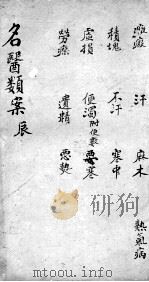 癥瘕 汗 麻木
積塊 不汗 寒中
虛損 便濁附便數 惡寒
勞瘵 遺精 惡熱
名醫類案 辰
www.islam.com.cn